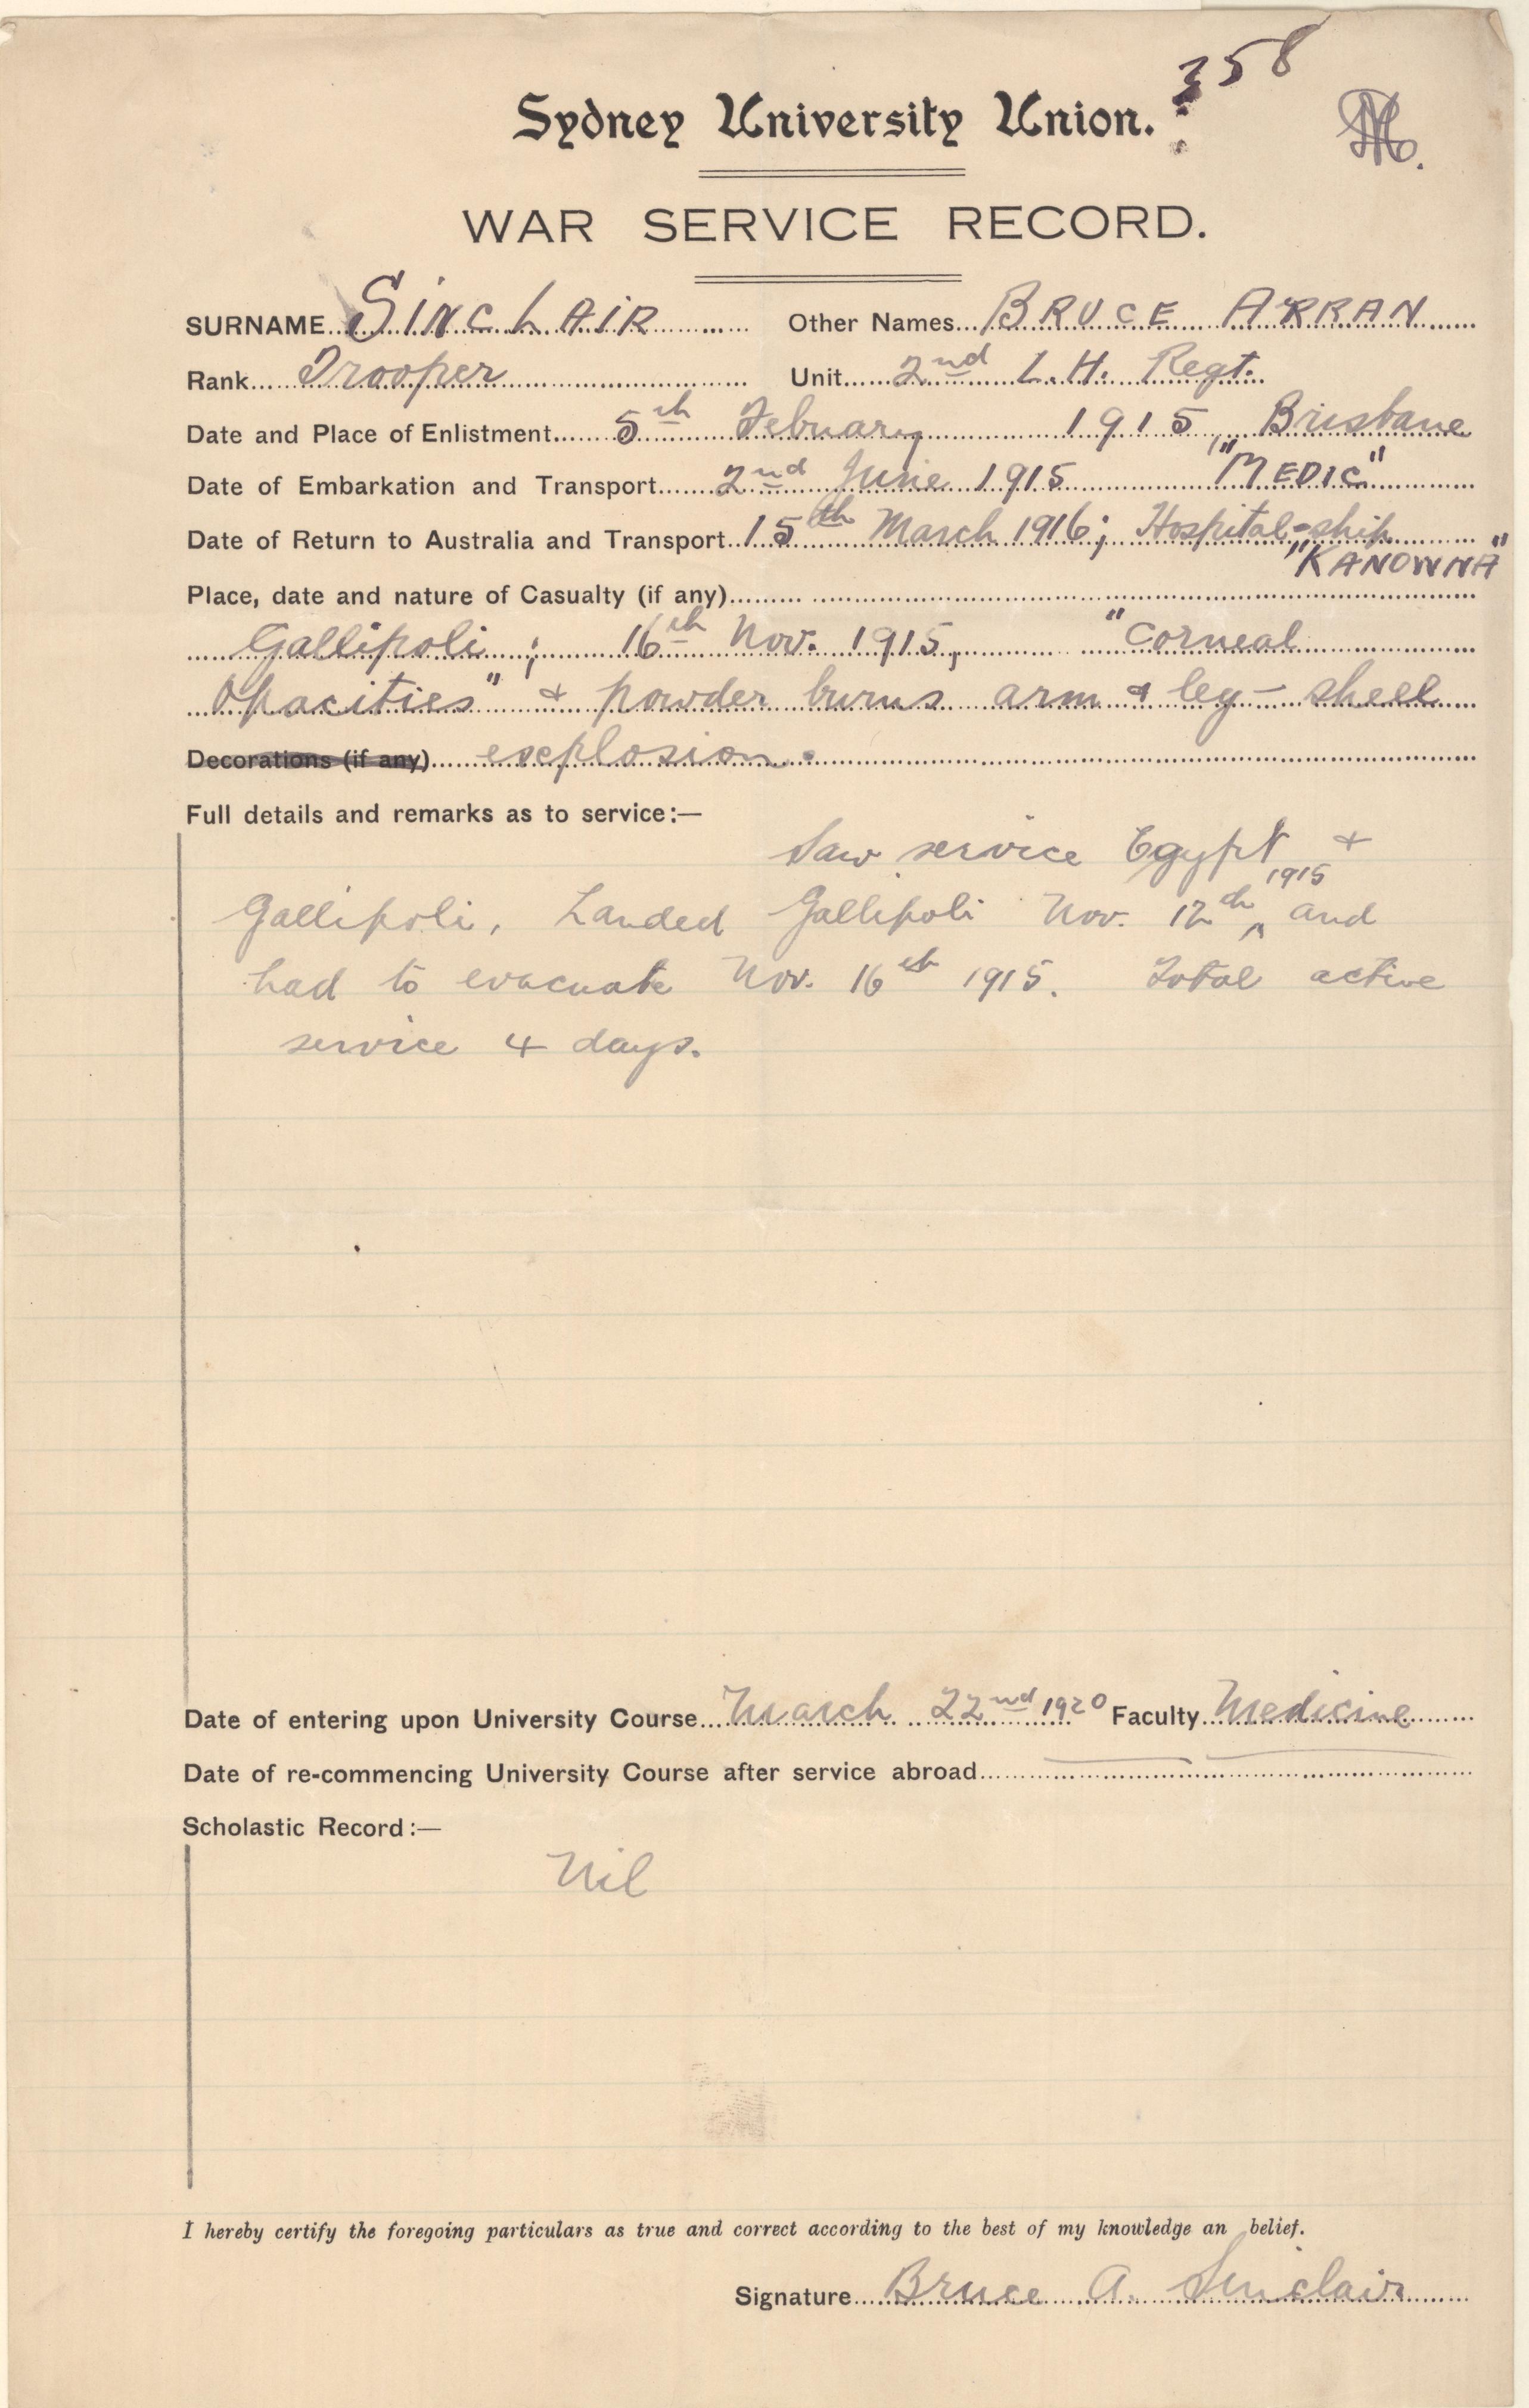 358
Sydney University Union.
WAR SERVICE RECORD.
SURNAME SINCLAIR Other Names BRUCE ARRAN
Rank Trooper Unit 2nd L.H. Regt.
Date and Place of Enlistment 5th Febuary 1915, Brisbane
Date of Embarkation and Transport 2nd June 1915 "MEDIC"
Date of Return to Australia and Transport 15th March 1916; Hospital-ship
"KANOWNA"
Place, date and nature of Casualty (if any)
Gallipoli; 16th Nov. 1915, "Corneal
Opacities" & powder burns arm & leg – shell
Decorations (if any) explosion.
Full details and remarks as to service:—
Saw service Egypt &
Gallipoli, Landed Gallipoli Nov. 12th 1915 and
had to evacuate Nov. 16th 1915. Total active
service 4 days.
Date of entering upon University Course March 22nd 1920 Faculty Medicine
Date of re-commencing University Course after service abroad
Scholastic Record:—
Nil
I hereby certify the foregoing particulars as true and correct according to the best of my knowledge an belief.
Signature Bruce A. Sinclair